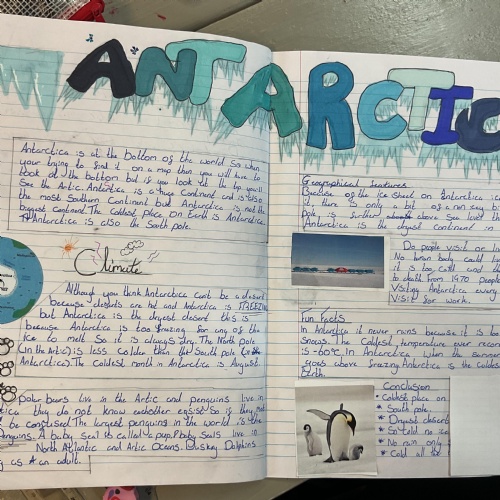 ANTARCTIC
Antarctica is at the bottom of the world so when
your trying to find it on a map then you will have to
look at the bottom but if you look at the tip you'll
see the Artic. Antartica is a huge continent and is also
the most Southern Continent but Antarctica is not the
biggest continent. The coldest place on Earth is Antarctica
Antarctica is also the South pole.
Climate
Although you think Antarctica cant be a desert
because deserts are hot and Antarctica is FREEZING
but Antarctica is the dryest desert this is
because Antarctica is too freezing for any of the
ice to melt so it is always dry. The North pole
(in the Artic) is less colder than the South pole
Antarctica). The coldest month in Antarctica is August.
polar bears live in the Artic and penguins live in
they do not know eachother egsist so if they
be confused. The largest penguins in the world is the
Penguins. A baby seal is called a pup. baby seals live in
North Atlantic and Artic Oceans. Duskey Dolphins
as an adult.
Geographical features
Because of the ice sheet on Antarctica
it, there is only a bit of
Pole is further above sea level
Antarctica is the dryest continent in
Do people visit or
No human body could
it is too cold and
to death. From 1970 people
Visiting Antarctica every
Visit for work.
Fun Facts
In Antarctica it never rains because it is too
Snows. The Coldest temperature ever recor
is -60°c. In Antarctica when the
goes above freezing. Antarctica is the Coldest
Earth.
Conclusion
* Coldest place on
* South pole.
* Dryest desert
* So cold no ice
* No rain only
* Cold all the